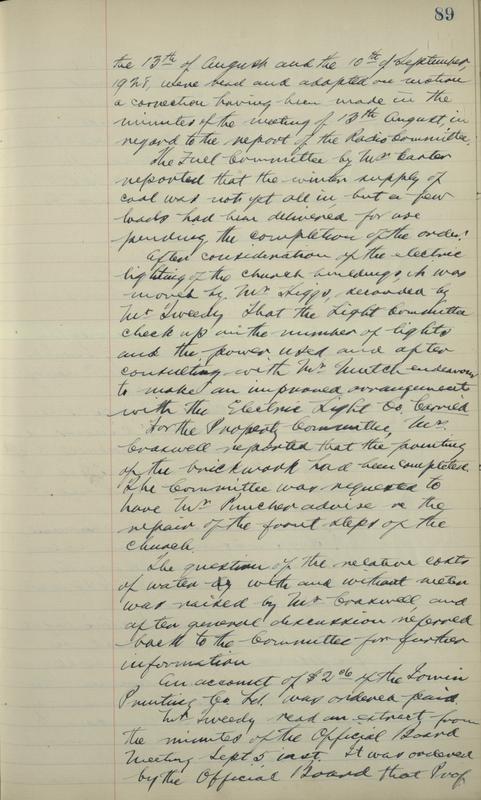 89
the 13th of August and the 10th of September
1928, were read and adopted on motion
a correction having been made in the
minutes of the meeting of 13th August, in
regard to the report of the Radio Committee.
The Fuel Committee by Mr. Carter
reported that the winter supply of
coal was not yet all in but a few
loads had been delivered for use
pending the completion of the order.
After consideration of the electric
lighting of the church buildings, it was
moved by Mr. Higgs, seconded by
Mr Tweedy that the Light Committee
check up on the number of lights
and the power used and after
consulting with Mr. Mutch endeavour
to make an improved arrangement
with the Electric Light Co. Carried
For the Property Committee, Mr.
Craswell reported that the painting
of the brickwork had been completed.
The Committee was requested to
have Mr. Puncher advise re the
repair of the front steps of the
church.
The question of the relative costs
of water by with and without meter
was raised by Mr Craswell, and
after general discussion referred
back to the Committee for further
information
An account of $2.06 of the Irwin
Printing Co. Ltd. was ordered paid.
Mr Tweedy read an extract from
the minutes of the Official Board
Meeting Sept 5 inst. It was ordered
by the Official Board that Prof.